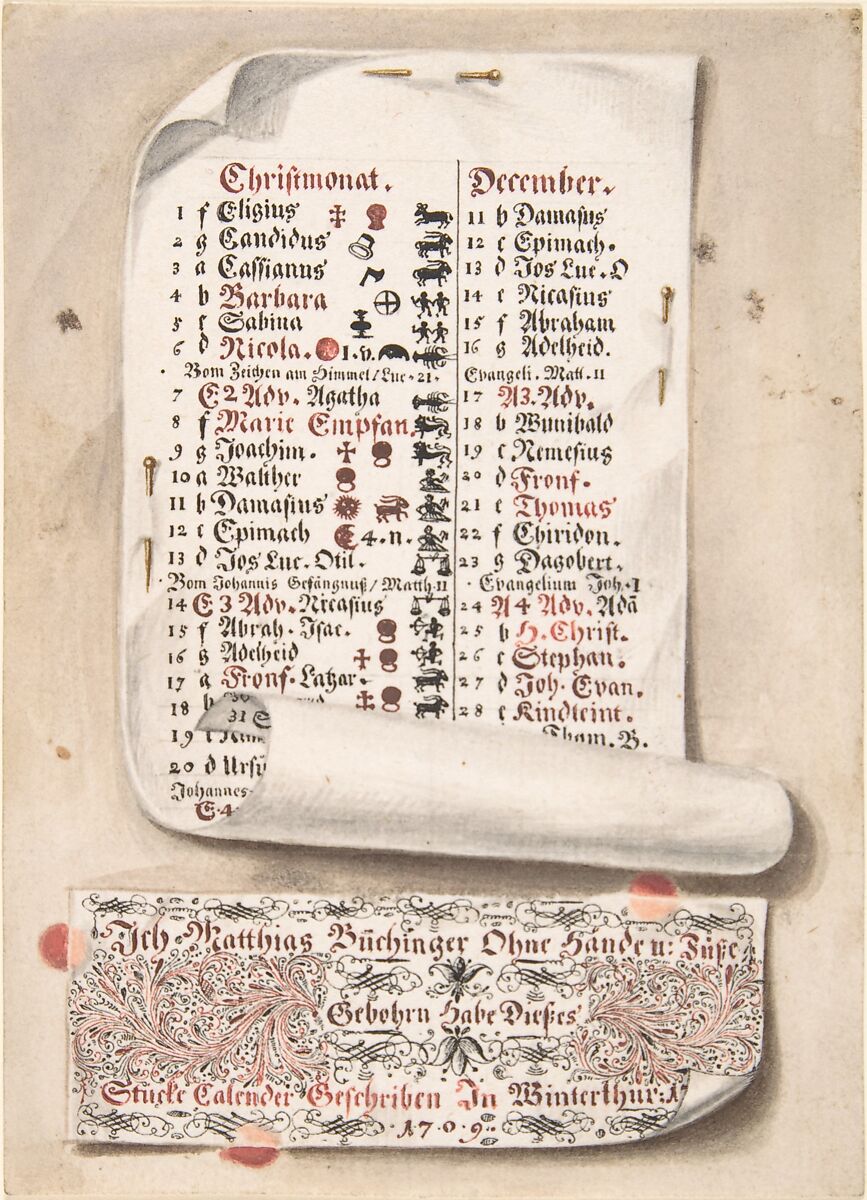 Christmonat.
1 f Eligius
2 g Candidus
3 a Cassianus
4 b Barbara
5 c Sabina
6 d Nicola. 1. v.
Vom Zeichen am Himmel/Luc. 21.
7 E 2 Adv. Agatha
8 f Marie Empfan.
9 g Joachim.
10 a Walther
11 b Damasius
12 c Epimach 4. n.
13 d Jos Luc. Otil.
Vom Johannis Gefängnuß/Matth. 11
14 E 3 Adv. Nicasius
15 f Abrah. Isac.
16 g Adelheid
17 a Fronf. Latzar.
18 b
31
19
20 d Ursi
Johannes
E. 4
December.
11 b Damasus
12 c Epimach.
13 d Jos Luc. O
14 e Nicasius
15 f Abraham
16 g Adelheid.
Evangeli. Matt. 11
17 A 3. Adv.
18 b Wunibald
19 c Nemesius
20 d Fronf.
21 e Thomas
22 f Chiridon.
23 g Dagobert.
Evangelium Joh. I
24 A 4 Adv. Adā
25 b H. Christ.
26 c Stephan.
27 d Joh. Evan.
28 e Kindleint.
Tham. B.
Ich Matthias Büchinger Ohne Hände u: Füße
Gebohrn Habe Dießes
Stucke Calender Geschriben In Winterthur. 17
1709.